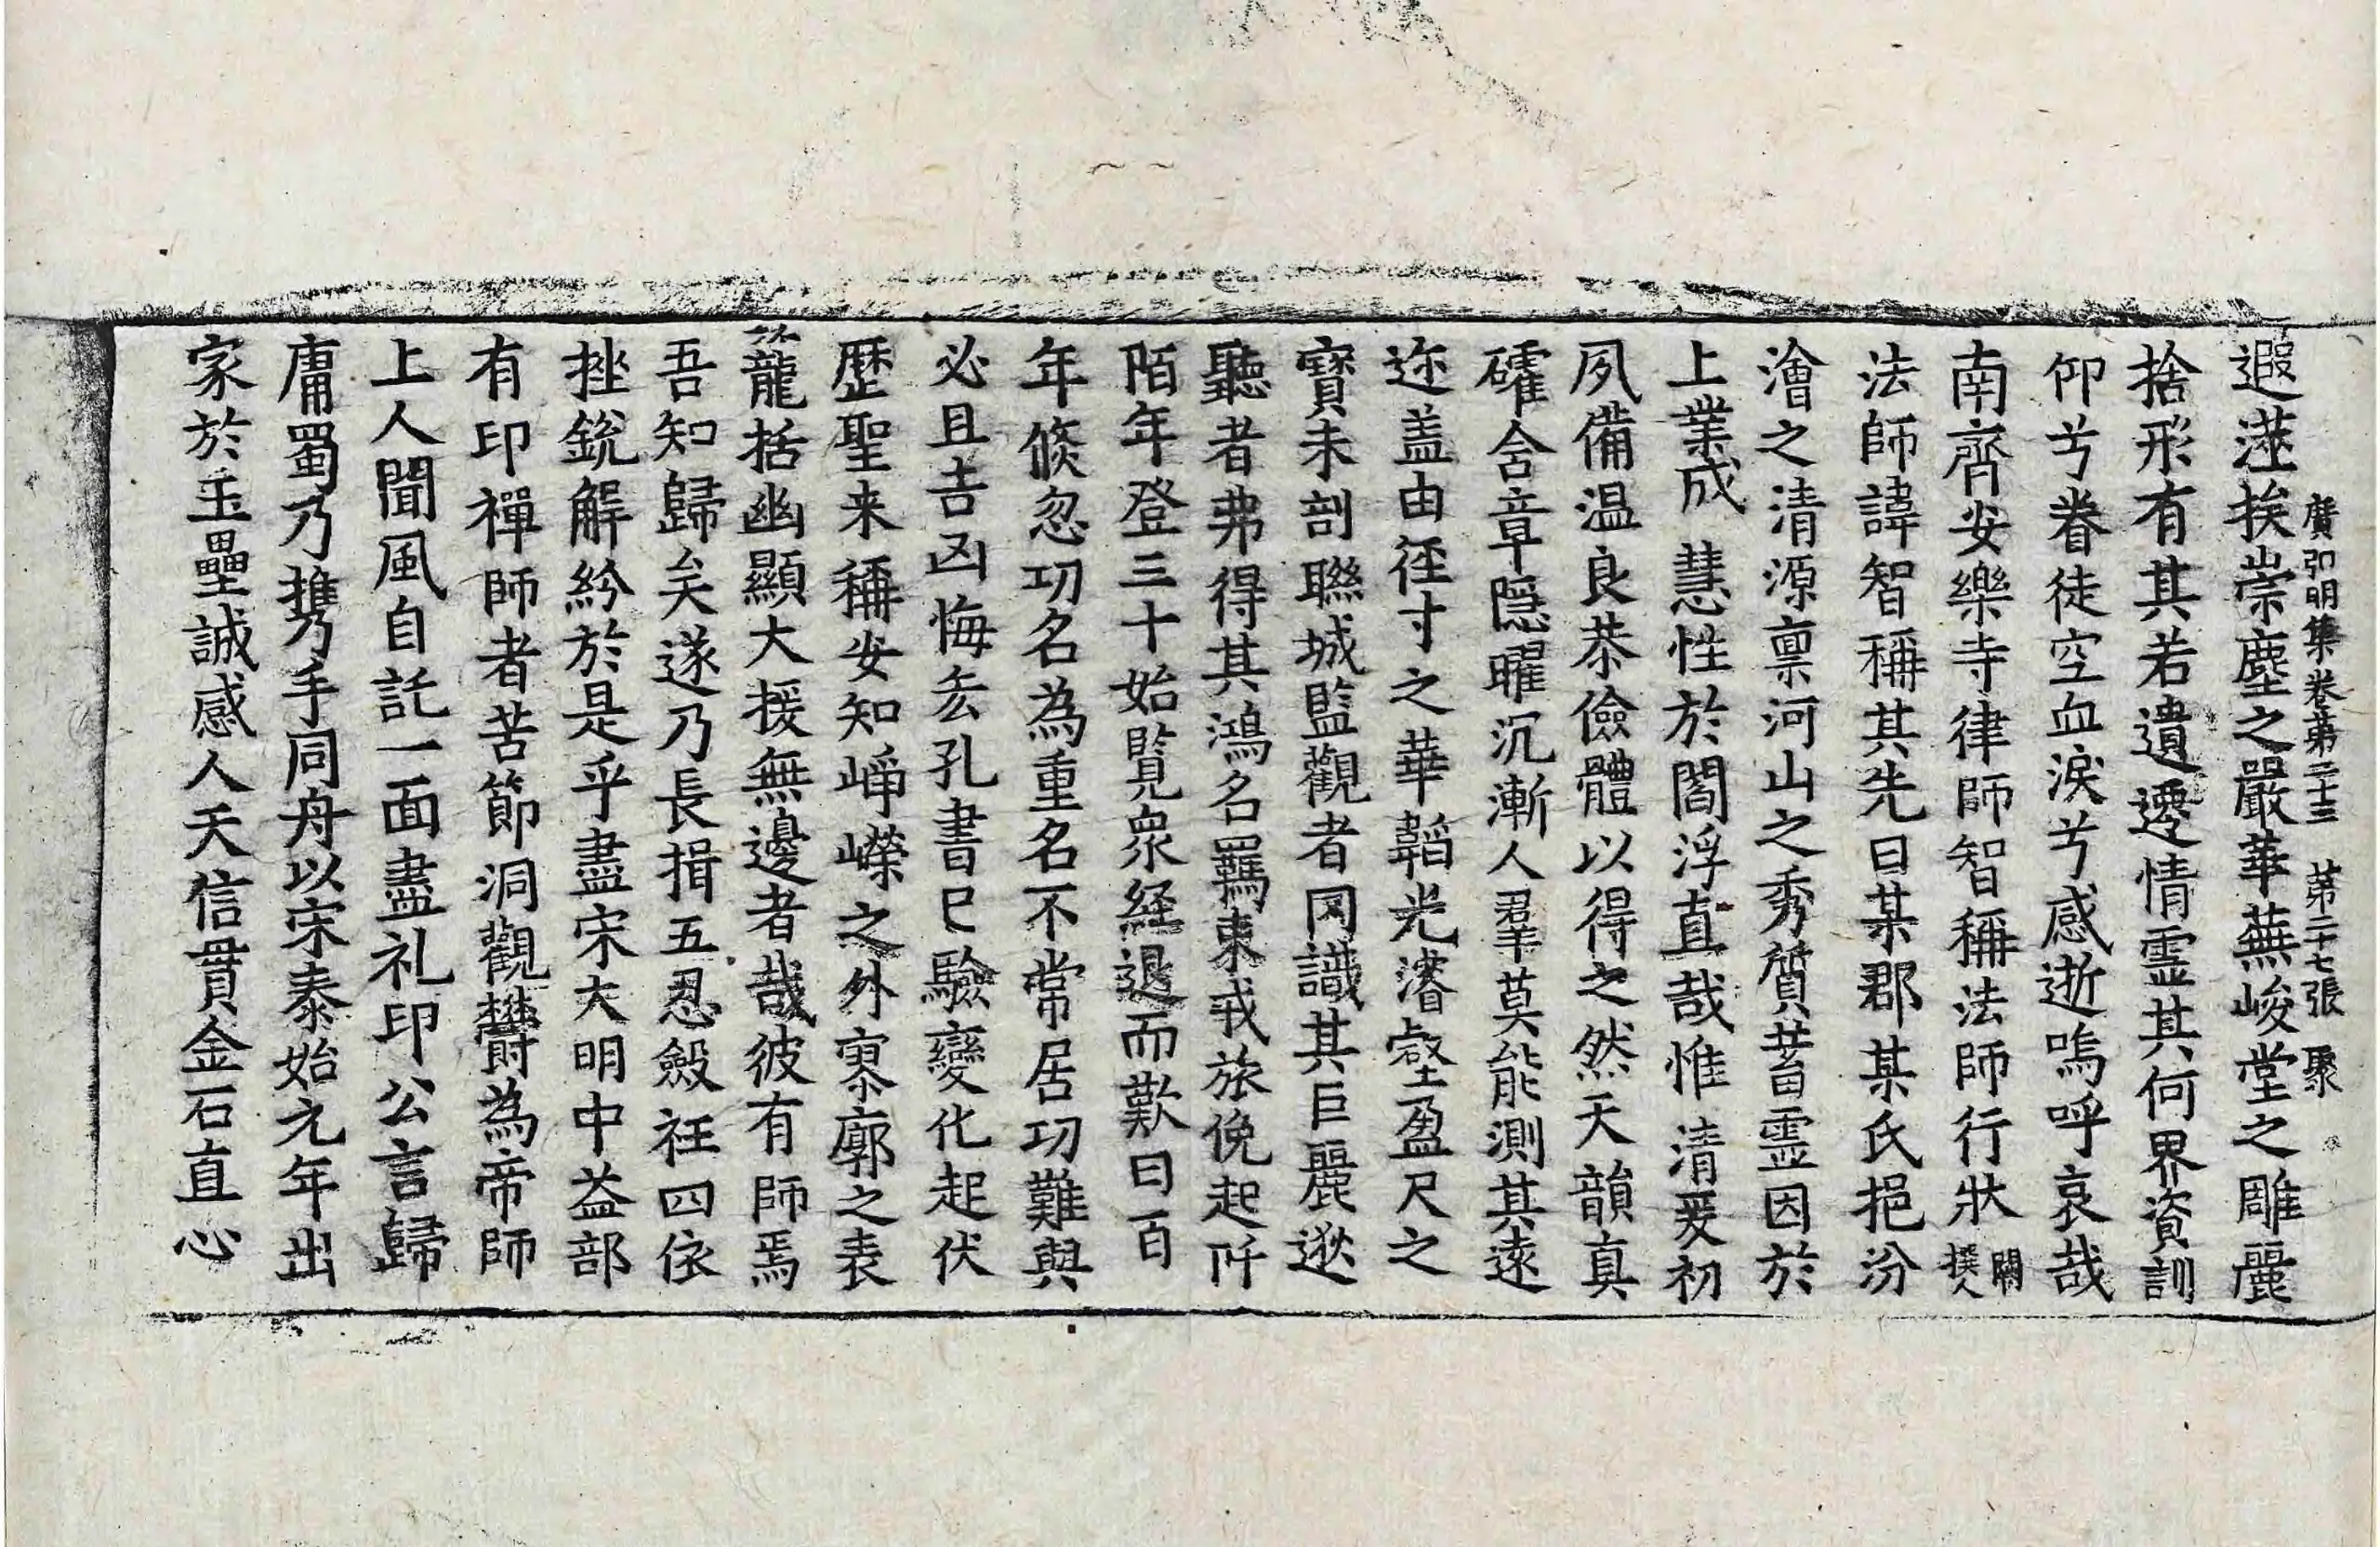 廣弘明集卷第二十三　第二十七張　聚
遐㳷挨崇塵之嚴華蕪峻堂之雕麗
捨形有其若遺遷情霊其何界資訓
仰兮眷徒空血淚兮感逝嗚呼哀哉
南齊安樂寺律師智稱法師行狀 闕撰人
法師諱智稱其先曰某郡某氏挹汾
澮之清源禀河山之秀質蓄霊因於
上業成慧性於閻浮直哉惟清爰初
夙備温良恭儉體以得之然天韻真
確含章隱曜沉漸人羣莫能測其遠
迩盖由徑寸之華韜光濬壑盈尺之
寶未剖聯城監觀者罔識其巨麗逖
聽者弗得其鴻名羈束戎旅俛起阡
陌年登三十始覧衆経退而歎曰百
年倐忽功名為重名不常居功難與
必且吉凶悔吝孔書已驗變化起伏
歴聖来稱安知崢嶸之外寥廓之表
籠括幽顯大援無邊者哉彼有師焉
吾知歸矣遂乃長揖五忍斂衽四依
挫銳解紛於是乎盡宋大明中益部
有印禪師者苦節洞觀欝為帝師
上人聞風自託一面盡礼印公言歸
庸蜀乃携手同舟以宋泰始元年出
家於玉壘誠感人天信貫金石直心